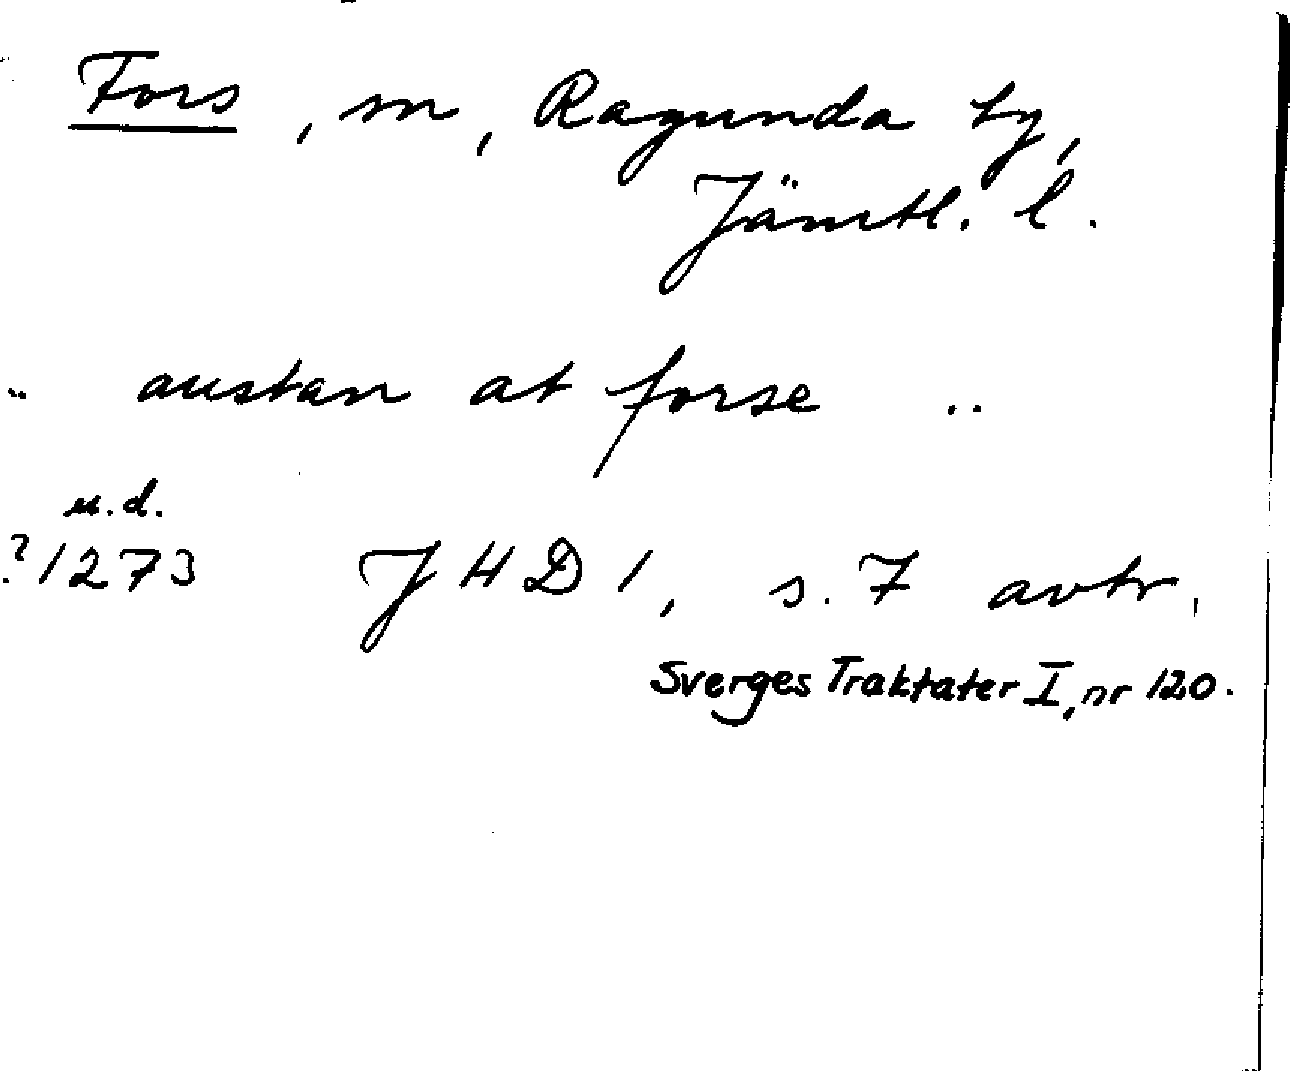 Fors, sn, Ragunda tg,
Jämtl. l.
.. austan at forse ..
u.d.
?1273 JHD 1, s. 7 avtr.
Sverges Traktater I, nr 120.